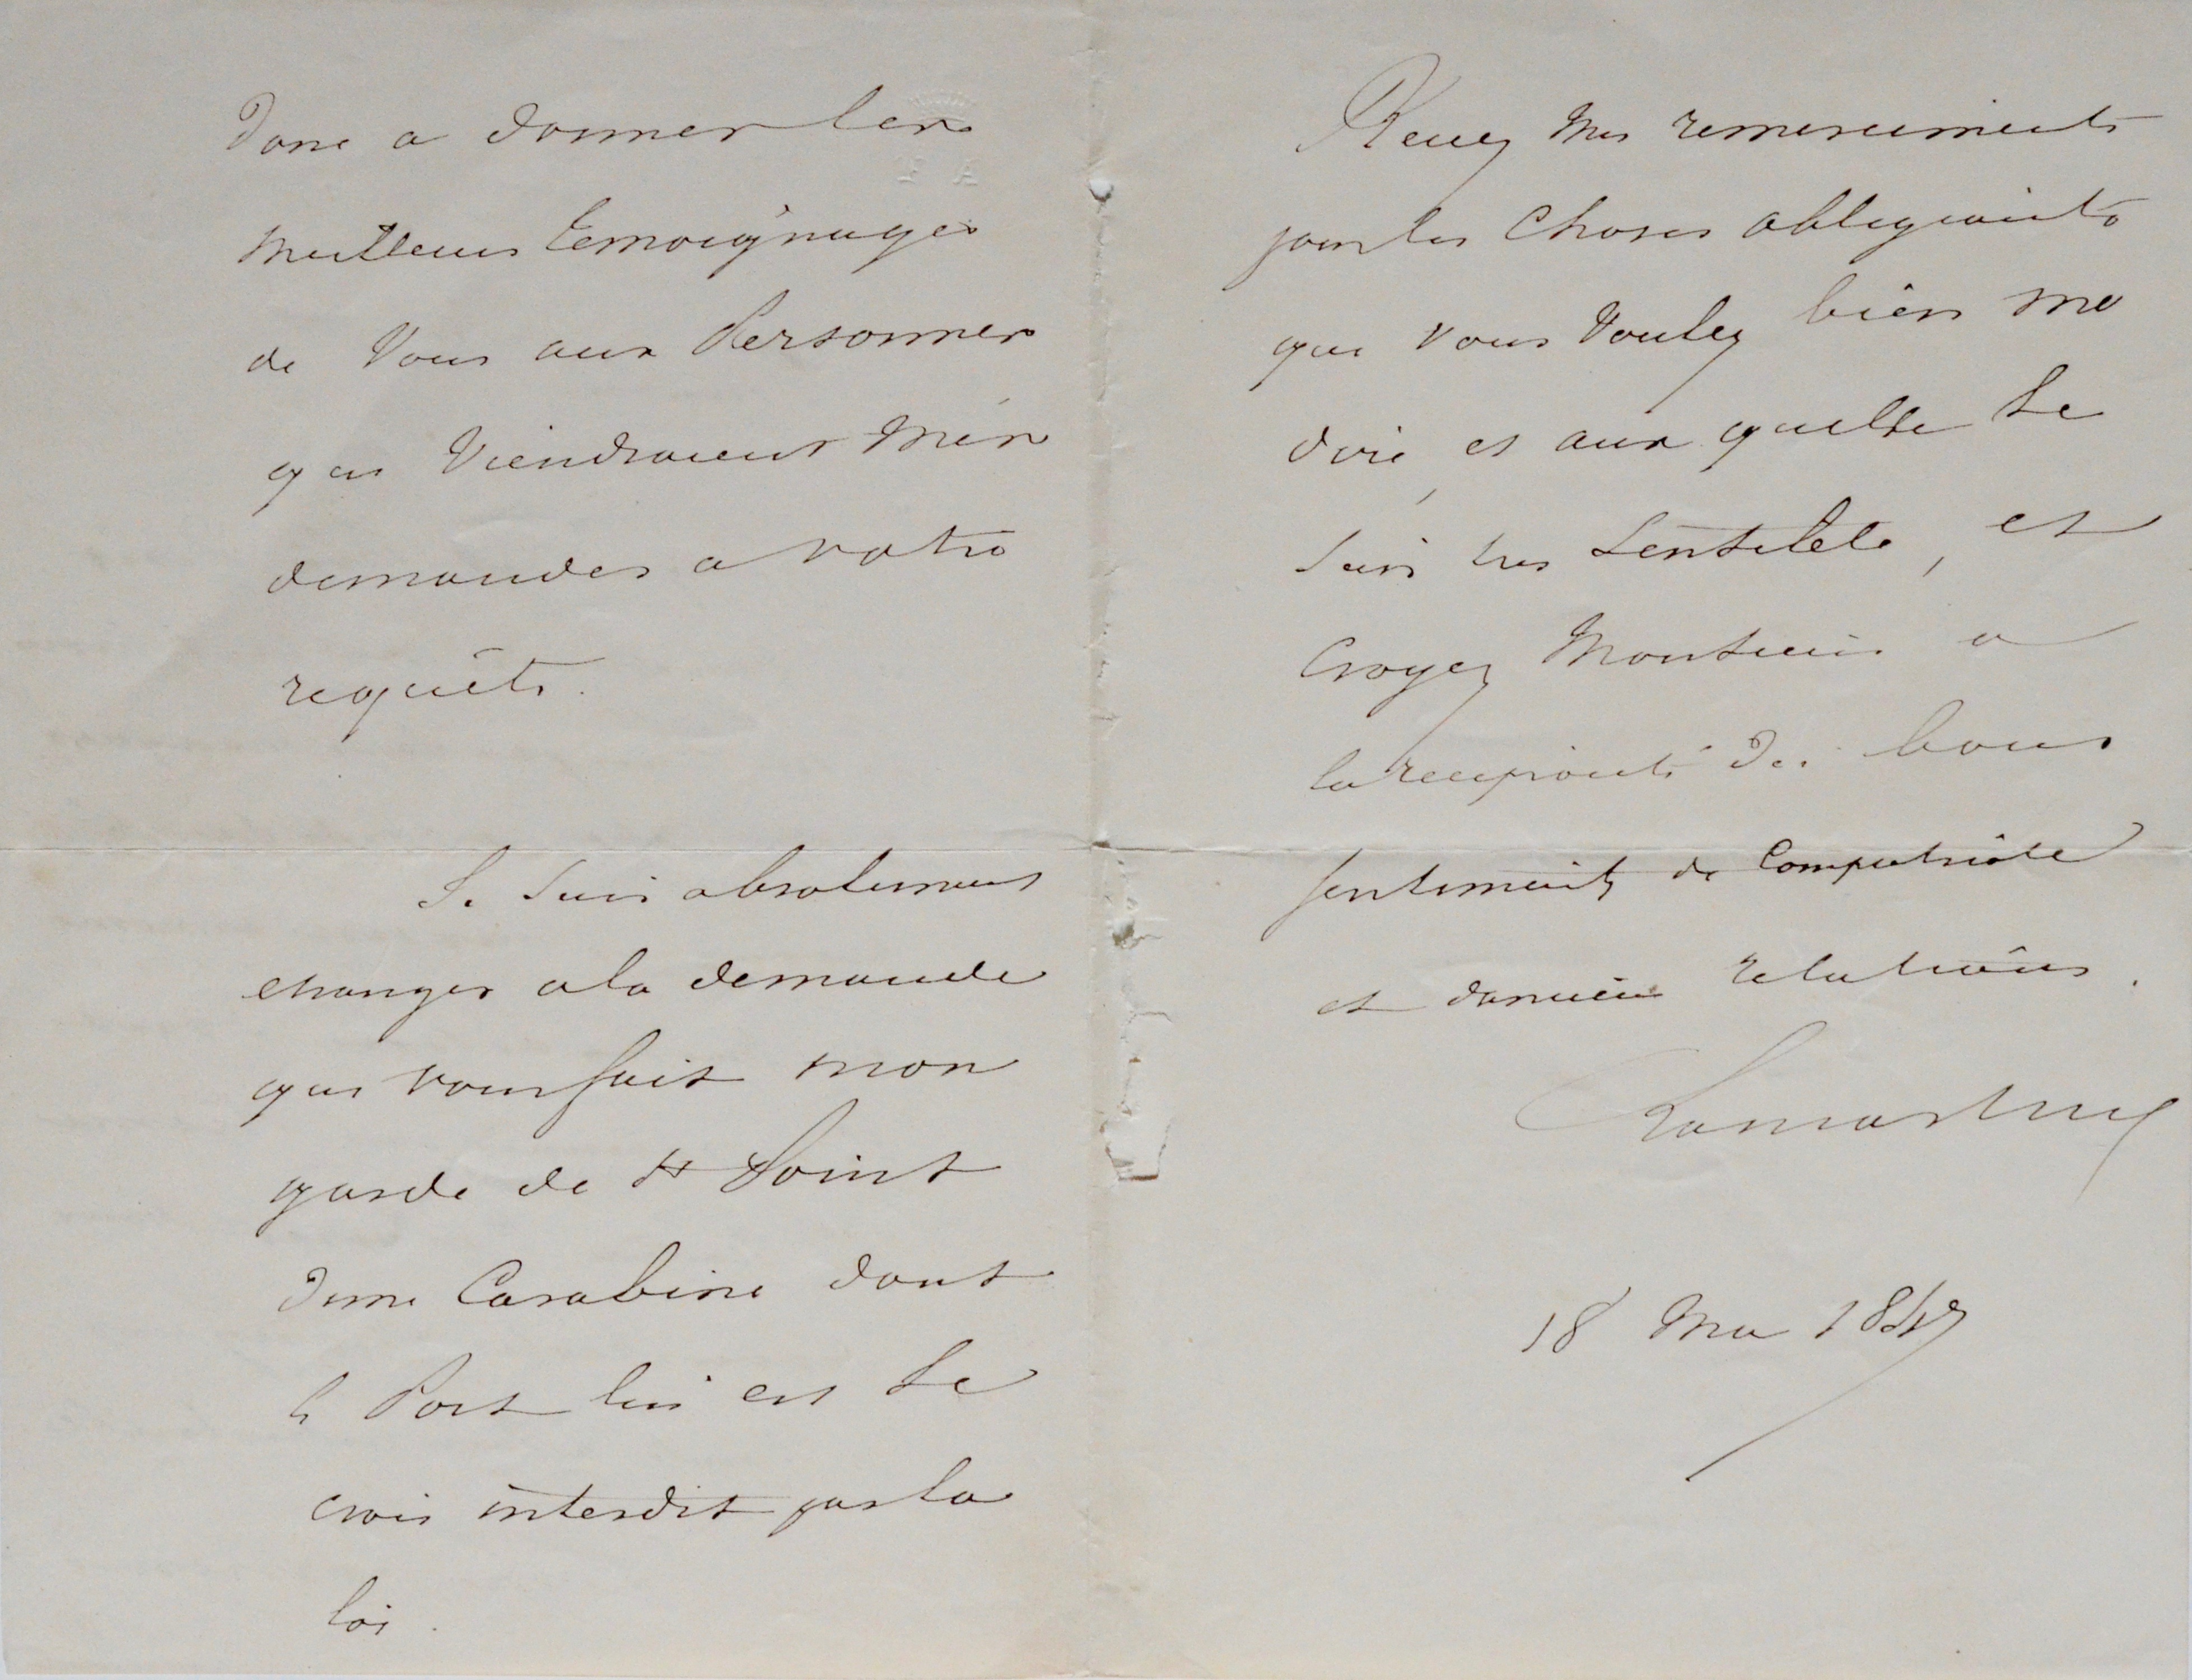 donc a donner les
meilleurs temoignages
de Vous aux Personnes
qui Viendraient M'en
demander a votre
requête.
Je suis absolument
etranger a la demande
que vous fait mon
garde de St Point
d'une Carabine dont
le Port lui est Je
crois interdit par la
loi.
Recevez Mes remerciments
pour les Choses obligeantes
que Vous Voulez bien me
dire et aux quelles Je
suis tres Sensible, et
Croyez Monsieur a
la reciprocité des bons
sentiments de Compatriote
et d'anciennes relations.
Lamartine
18 Mai 1847